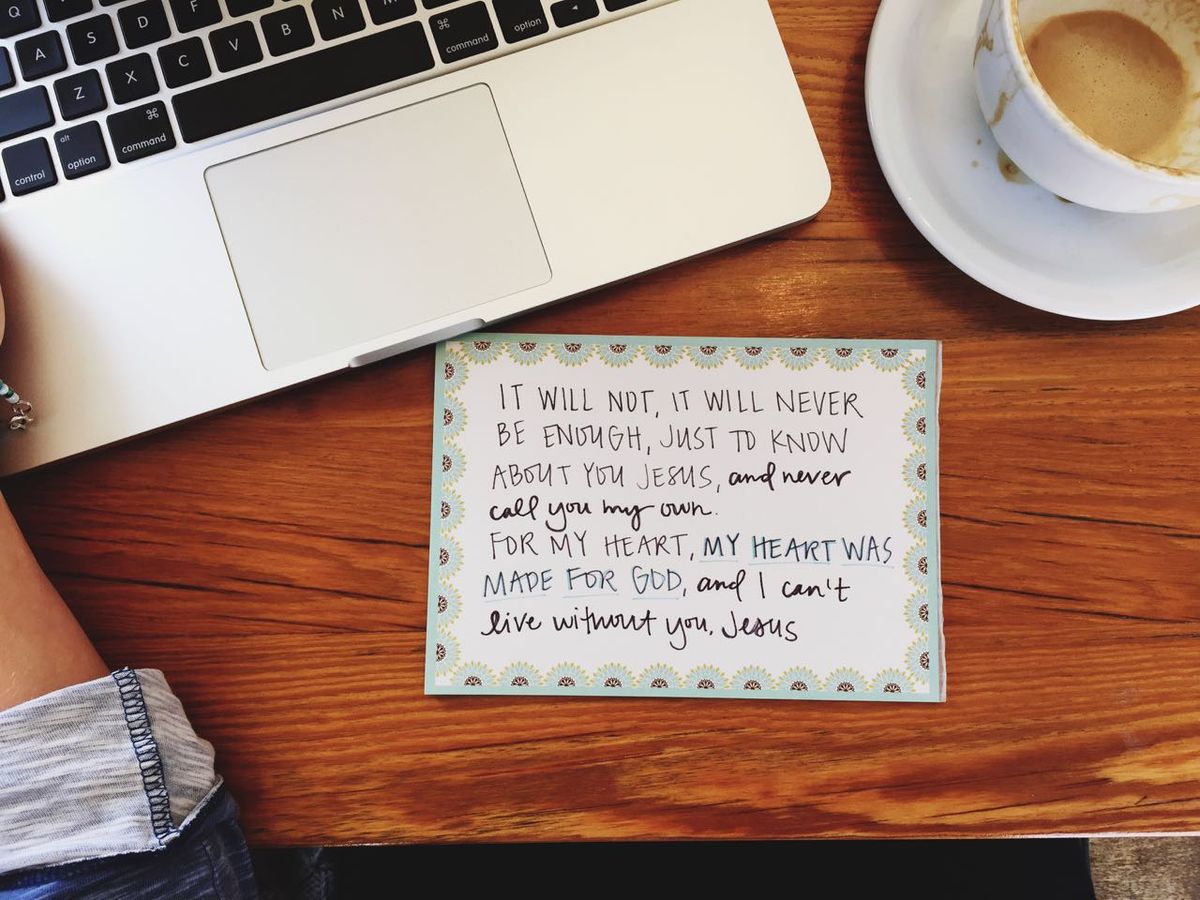 Q D F G H J
A S
Z X C V B N M
⌘ command option
alt option ⌘ command
control
IT WILL NOT, IT WILL NEVER
BE ENOUGH, JUST TO KNOW
ABOUT YOU JESUS, and never
call you my own.
FOR MY HEART, MY HEART WAS
MADE FOR GOD, and I can't
live without you, Jesus